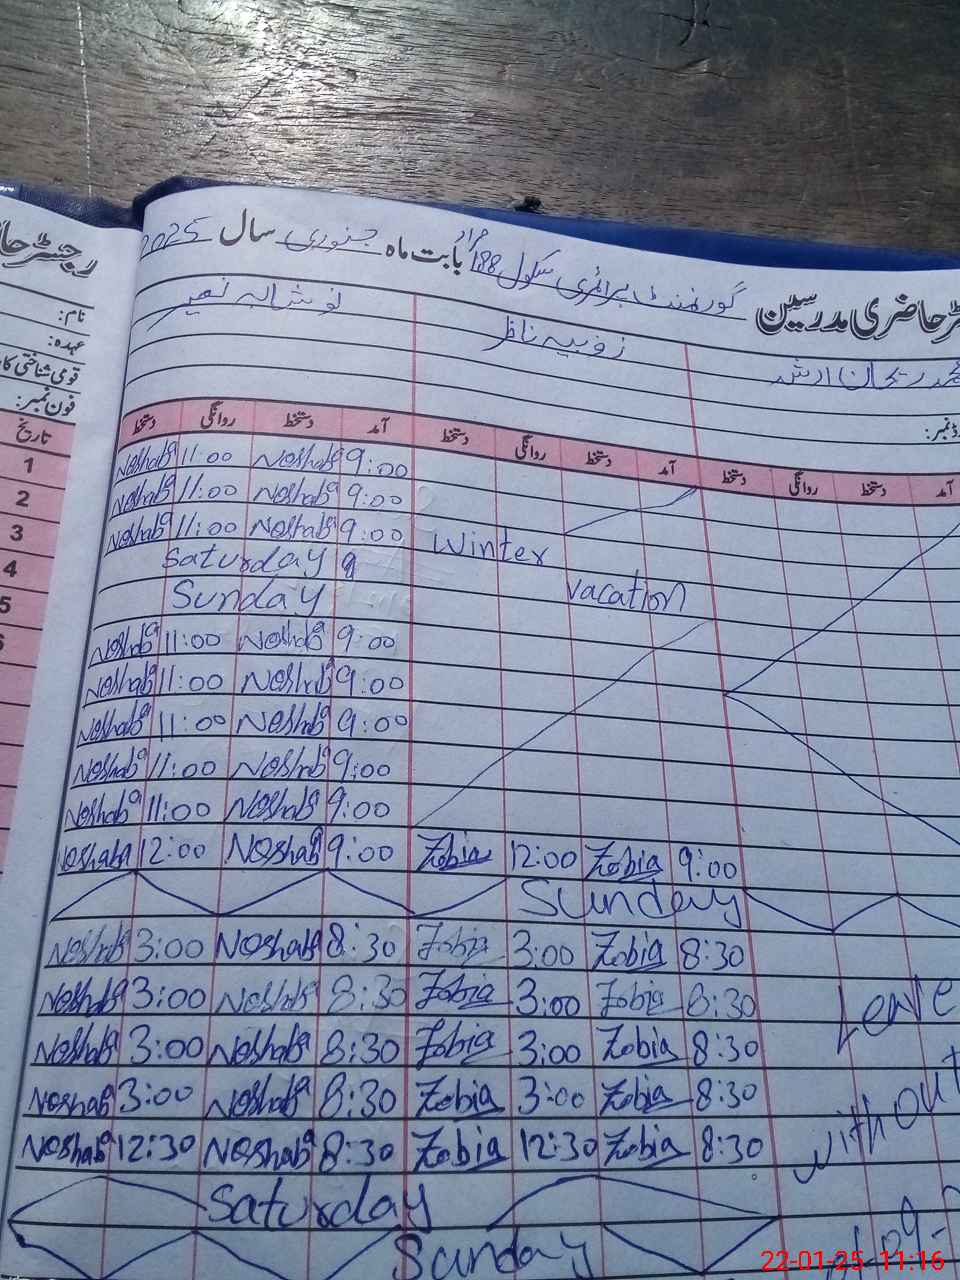 رجسٹر حا
نام:
عہدہ:
قومی شناختی کا
فون نمبر:
تاریخ
1
2
3
4
5
6
ٹر حاضری مدرسین گورنمنٹ پرائمری سکول 188 مراد بابت ماہ جنوری سال 2025
محمد ریحان ارشد زوبیہ ناظر
ڈ نمبر:
آمد دستخط روانگی دستخط آمد دستخط روانگی دستخط آمد دستخط روانگی دستخط
Noshaba 11:00 Noshaba 9:00
Noshaba 11:00 Noshaba 9:00
Noshaba 11:00 Noshaba 9:00 Winter
Saturday
Sunday vacation
Noshaba 11:00 Noshaba 9:00
Noshaba 11:00 Noshaba 9:00
Noshaba 11:00 Noshaba 9:00
Noshaba 11:00 Noshaba 9:00
Noshaba 11:00 Noshaba 9:00
Noshaba 12:00 Noshaba 9:00 Zobia 12:00 Zobia 9:00
Sunday
Noshaba 3:00 Noshaba 8:30 Zobia 3:00 Zobia 8:30
Noshaba 3:00 Noshaba 8:30 Zobia 3:00 Zobia 8:30 Leave
Noshaba 3:00 Noshaba 8:30 Zobia 3:00 Zobia 8:30
Noshaba 3:00 Noshaba 8:30 Zobia 3:00 Zobia 8:30 without
Noshaba 12:30 Noshaba 8:30 Zobia 12:30 Zobia 8:30
Saturday
Sunday
22-01-25 11:16